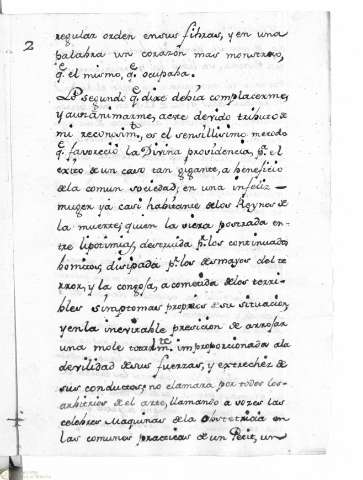 2
regular orden en sus fibras, y en una
palabra un corazon mas monstruo,
q.e el mismo, q.e ocupaba.
Lo segundo q.e dixe debía complacerme,
y aun animarme, a este devido tributo de
mi reconocim.to es el sensillisimo metodo
q.e favoreció la Divina providencia, p.a el
exito de un caso tan gigante, a beneficio
de la comun sociedad; en una infeliz
muger ya casi habitante de los Reynos de
la muerte; quien la viera postrada en-
tre lipotimias, destruida p.r los continuados
bomitos, disipada p.r los desmayos del te
rror, y la congoja, acometida de los terri-
bles simptomas propios de su situacion,
y en la inevitable precision de arrojar
una mole totalm.te improporcionada a la
devilidad de sus fuerzas, y estrechez de
sus conductos; no clamara por todos los
arbitrios de el arte, llamando a vozes las
celebres Maquinas de la Obstetricia en
las comunes practicas de un Petit, un